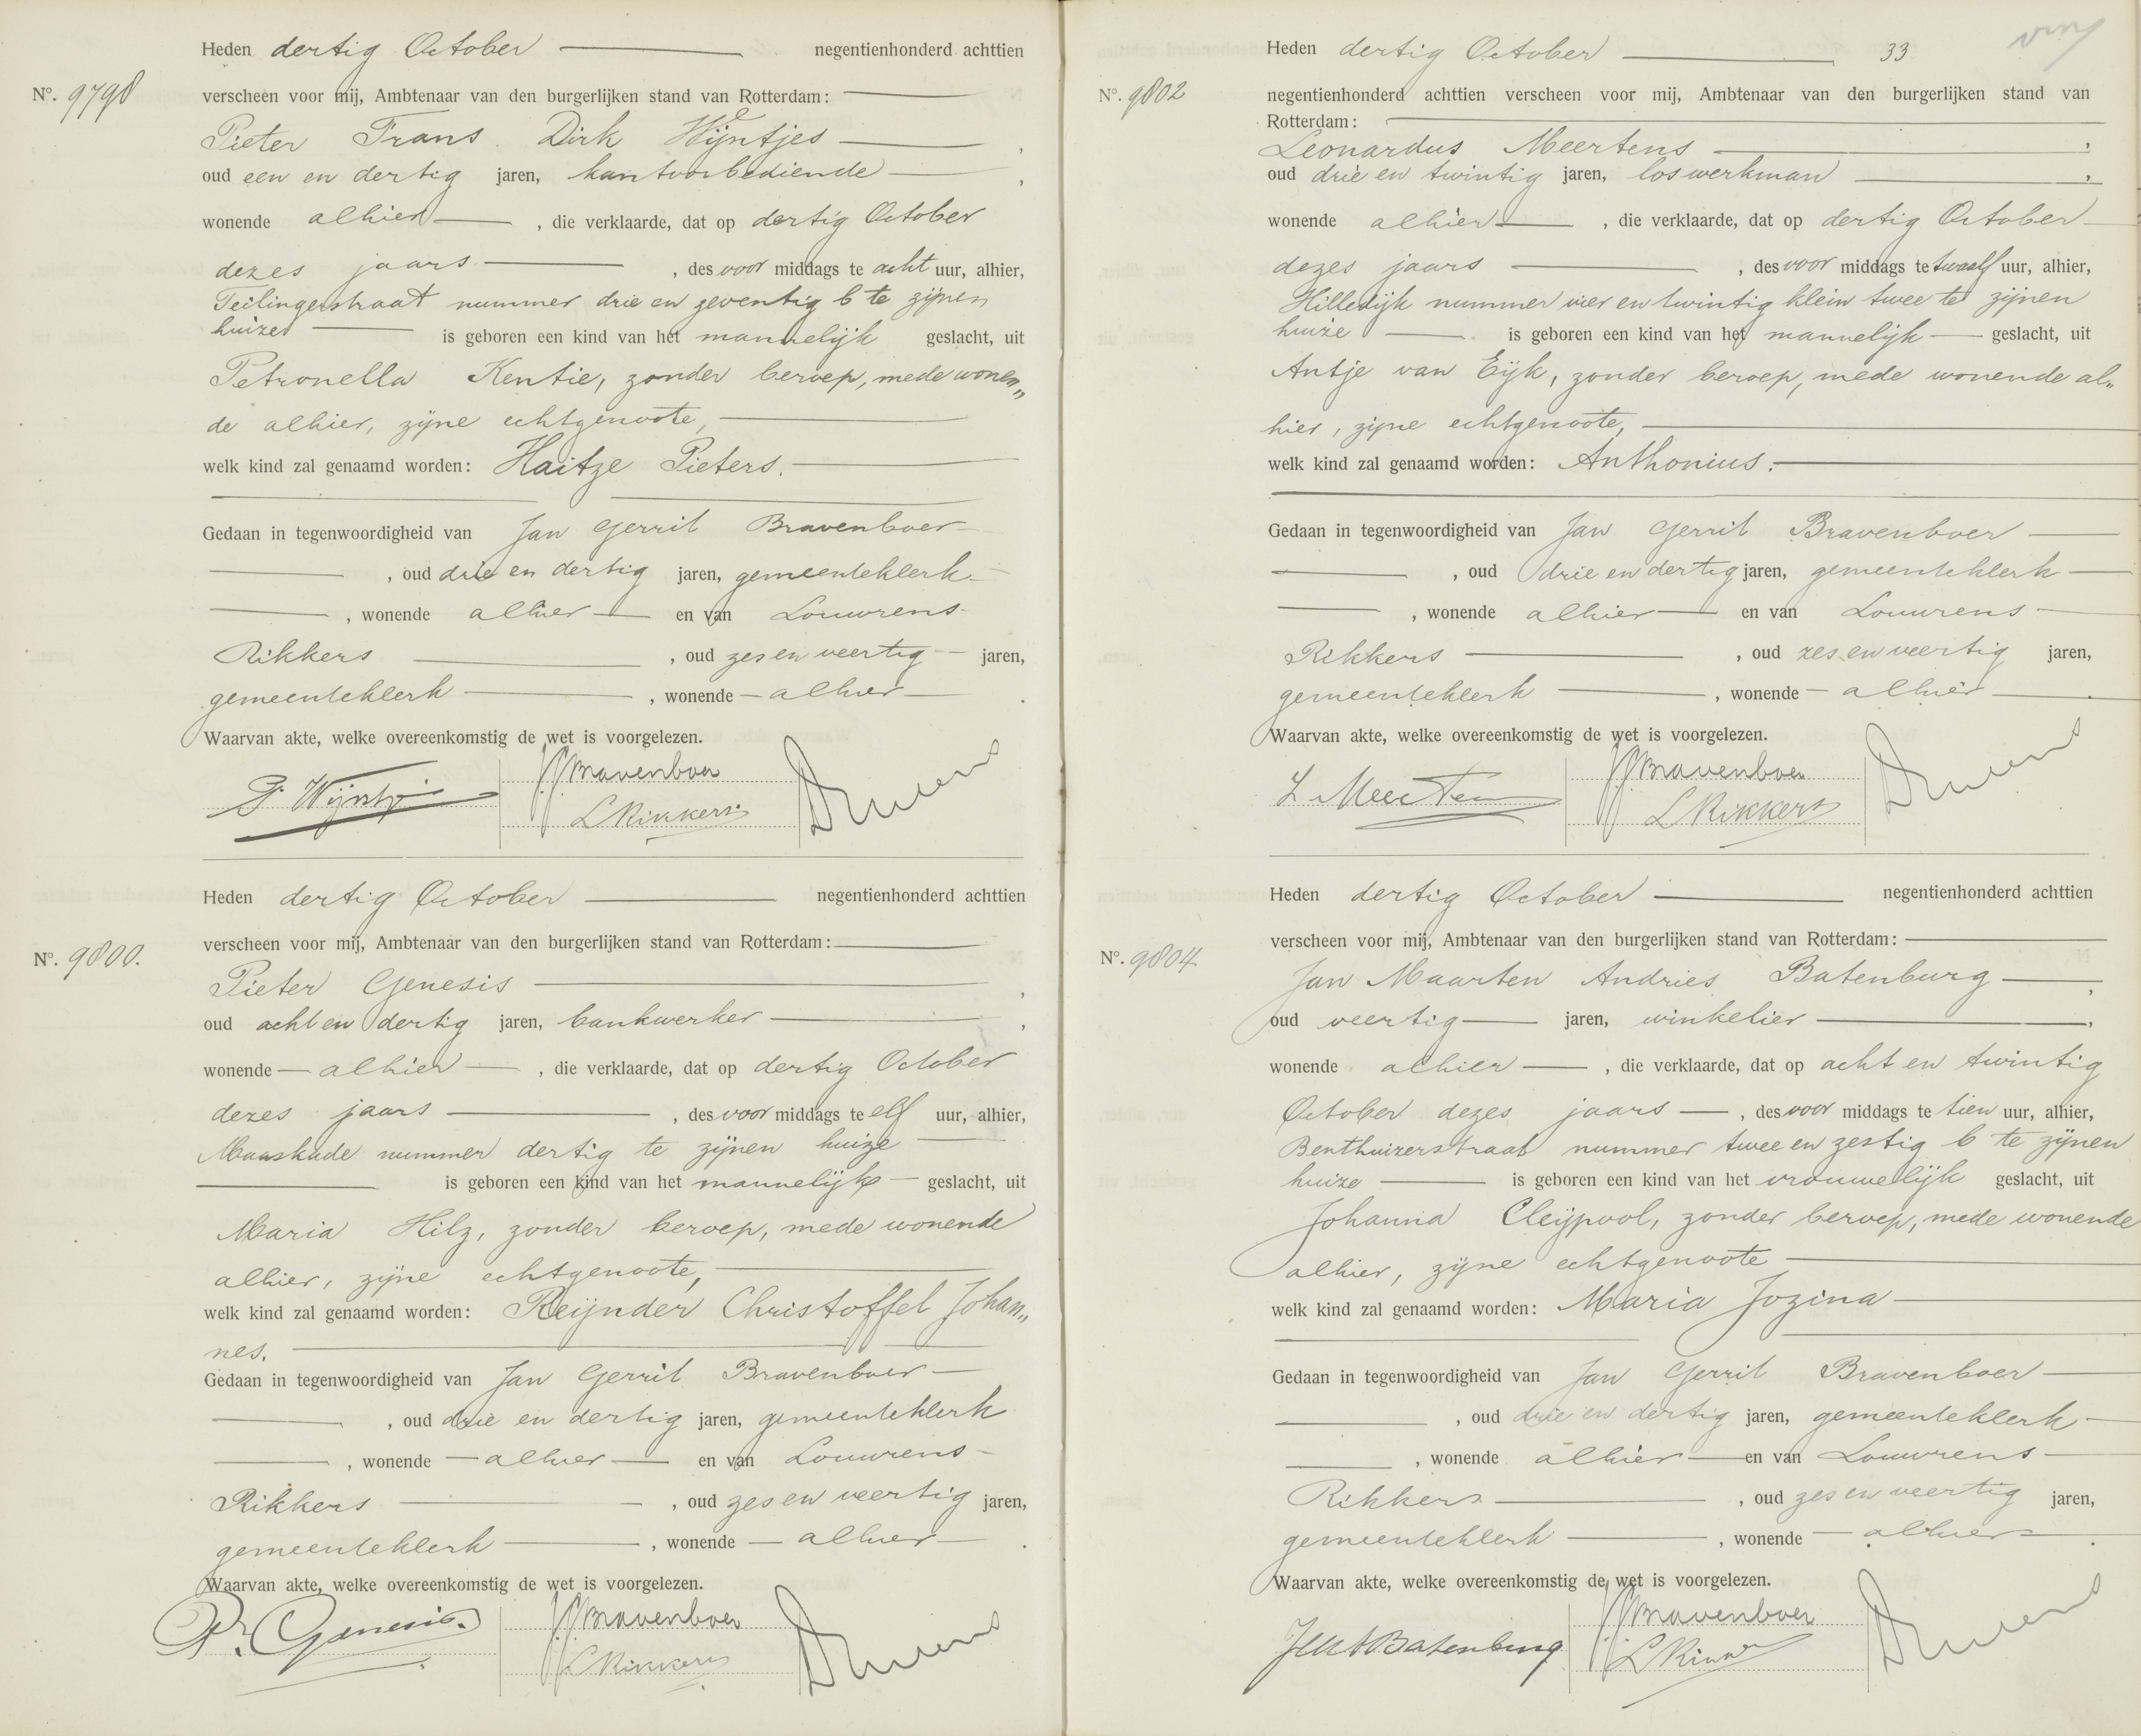 Heden dertig October negentienhonderd achttien
No. 9798
verscheen voor mij, Ambtenaar van den burgerlijken stand van Rotterdam:
Pieter Frans Dirk Wijntjes ,
oud een en dertig jaren, kantoorbediende ,
wonende alhier , die verklaarde, dat op dertig October
dezes jaars , des voor middags te acht uur, alhier,
Teilingerstraat nummer drie en zeventig b te zijnen
huize is geboren een kind van het mannelijk geslacht, uit
Petronella Kentie, zonder beroep, mede wonen„
de alhier, zijne echtgenoote,
welk kind zal genaamd worden: Haitze Pieters.
Gedaan in tegenwoordigheid van Jan Gerrit Bravenboer
, oud drie en dertig jaren, gemeenteklerk
, wonende alhier en van Louwrens
Rikkers , oud zes en veertig jaren,
gemeenteklerk , wonende alhier .
Waarvan akte, welke overeenkomstig de wet is voorgelezen.
P. Wijntjes
JGBravenboer
LRikkers
Heden dertig October negentienhonderd achttien
No. 9800.
verscheen voor mij, Ambtenaar van den burgerlijken stand van Rotterdam:
Pieter Genesis ,
oud acht en dertig jaren, bankwerker ,
wonende alhier , die verklaarde, dat op dertig October
dezes jaars , des voor middags te elf uur, alhier,
Maaskade nummer dertig te zijnen huize
is geboren een kind van het mannelijk geslacht, uit
Maria Hilz, zonder beroep, mede wonende
alhier, zijne echtgenoote,
welk kind zal genaamd worden: Reijnder Christoffel Johan„
nes.
Gedaan in tegenwoordigheid van Jan Gerrit Bravenboer
, oud drie en dertig jaren, gemeenteklerk
, wonende alhier en van Louwrens
Rikkers , oud zes en veertig jaren,
gemeenteklerk , wonende alhier .
Waarvan akte, welke overeenkomstig de wet is voorgelezen.
P. Genesis.
JGBravenboer
LRikkers
Heden dertig October 33
No. 9802
negentienhonderd achttien verscheen voor mij, Ambtenaar van den burgerlijken stand van
Rotterdam:
Leonardus Meertens ,
oud drie en twintig jaren, los werkman ,
wonende alhier , die verklaarde, dat op dertig October
dezes jaars , des voor middags te twaalf uur, alhier,
Hilledijk nummer vier en twintig klein twee te zijnen
huize is geboren een kind van het mannelijk geslacht, uit
Antje van Eijk, zonder beroep, mede wonende al„
hier, zijne echtgenoote,
welk kind zal genaamd worden: Anthonius.
Gedaan in tegenwoordigheid van Jan Gerrit Bravenboer
, oud drie en dertig jaren, gemeenteklerk
, wonende alhier en van Louwrens
Rikkers , oud zes en veertig jaren,
gemeenteklerk , wonende alhier .
Waarvan akte, welke overeenkomstig de wet is voorgelezen.
L Meertens
JGBravenboer
LRikkers
Heden dertig October negentienhonderd achttien
No. 9804
verscheen voor mij, Ambtenaar van den burgerlijken stand van Rotterdam:
Jan Maarten Andries Batenburg ,
oud veertig jaren, winkelier ,
wonende alhier , die verklaarde, dat op acht en twintig
October dezes jaars , des voor middags te tien uur, alhier,
Benthuizerstraat nummer twee en zestig b te zijnen
huize is geboren een kind van het vrouwelijk geslacht, uit
Johanna Cleijpool, zonder beroep, mede wonende
alhier, zijne echtgenoote
welk kind zal genaamd worden: Maria Jozina
Gedaan in tegenwoordigheid van Jan Gerrit Bravenboer
, oud drie en dertig jaren, gemeenteklerk
, wonende alhier en van Louwrens
Rikkers , oud zes en veertig jaren,
gemeenteklerk , wonende alhier .
Waarvan akte, welke overeenkomstig de wet is voorgelezen.
JMABatenburg
JGBravenboer
LRikkers